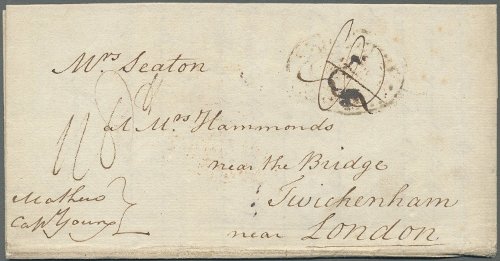 Mrs Seaton
at Mrs Hammonds
near the Bridge
Twickenham
near London
Mathew
Capt Young